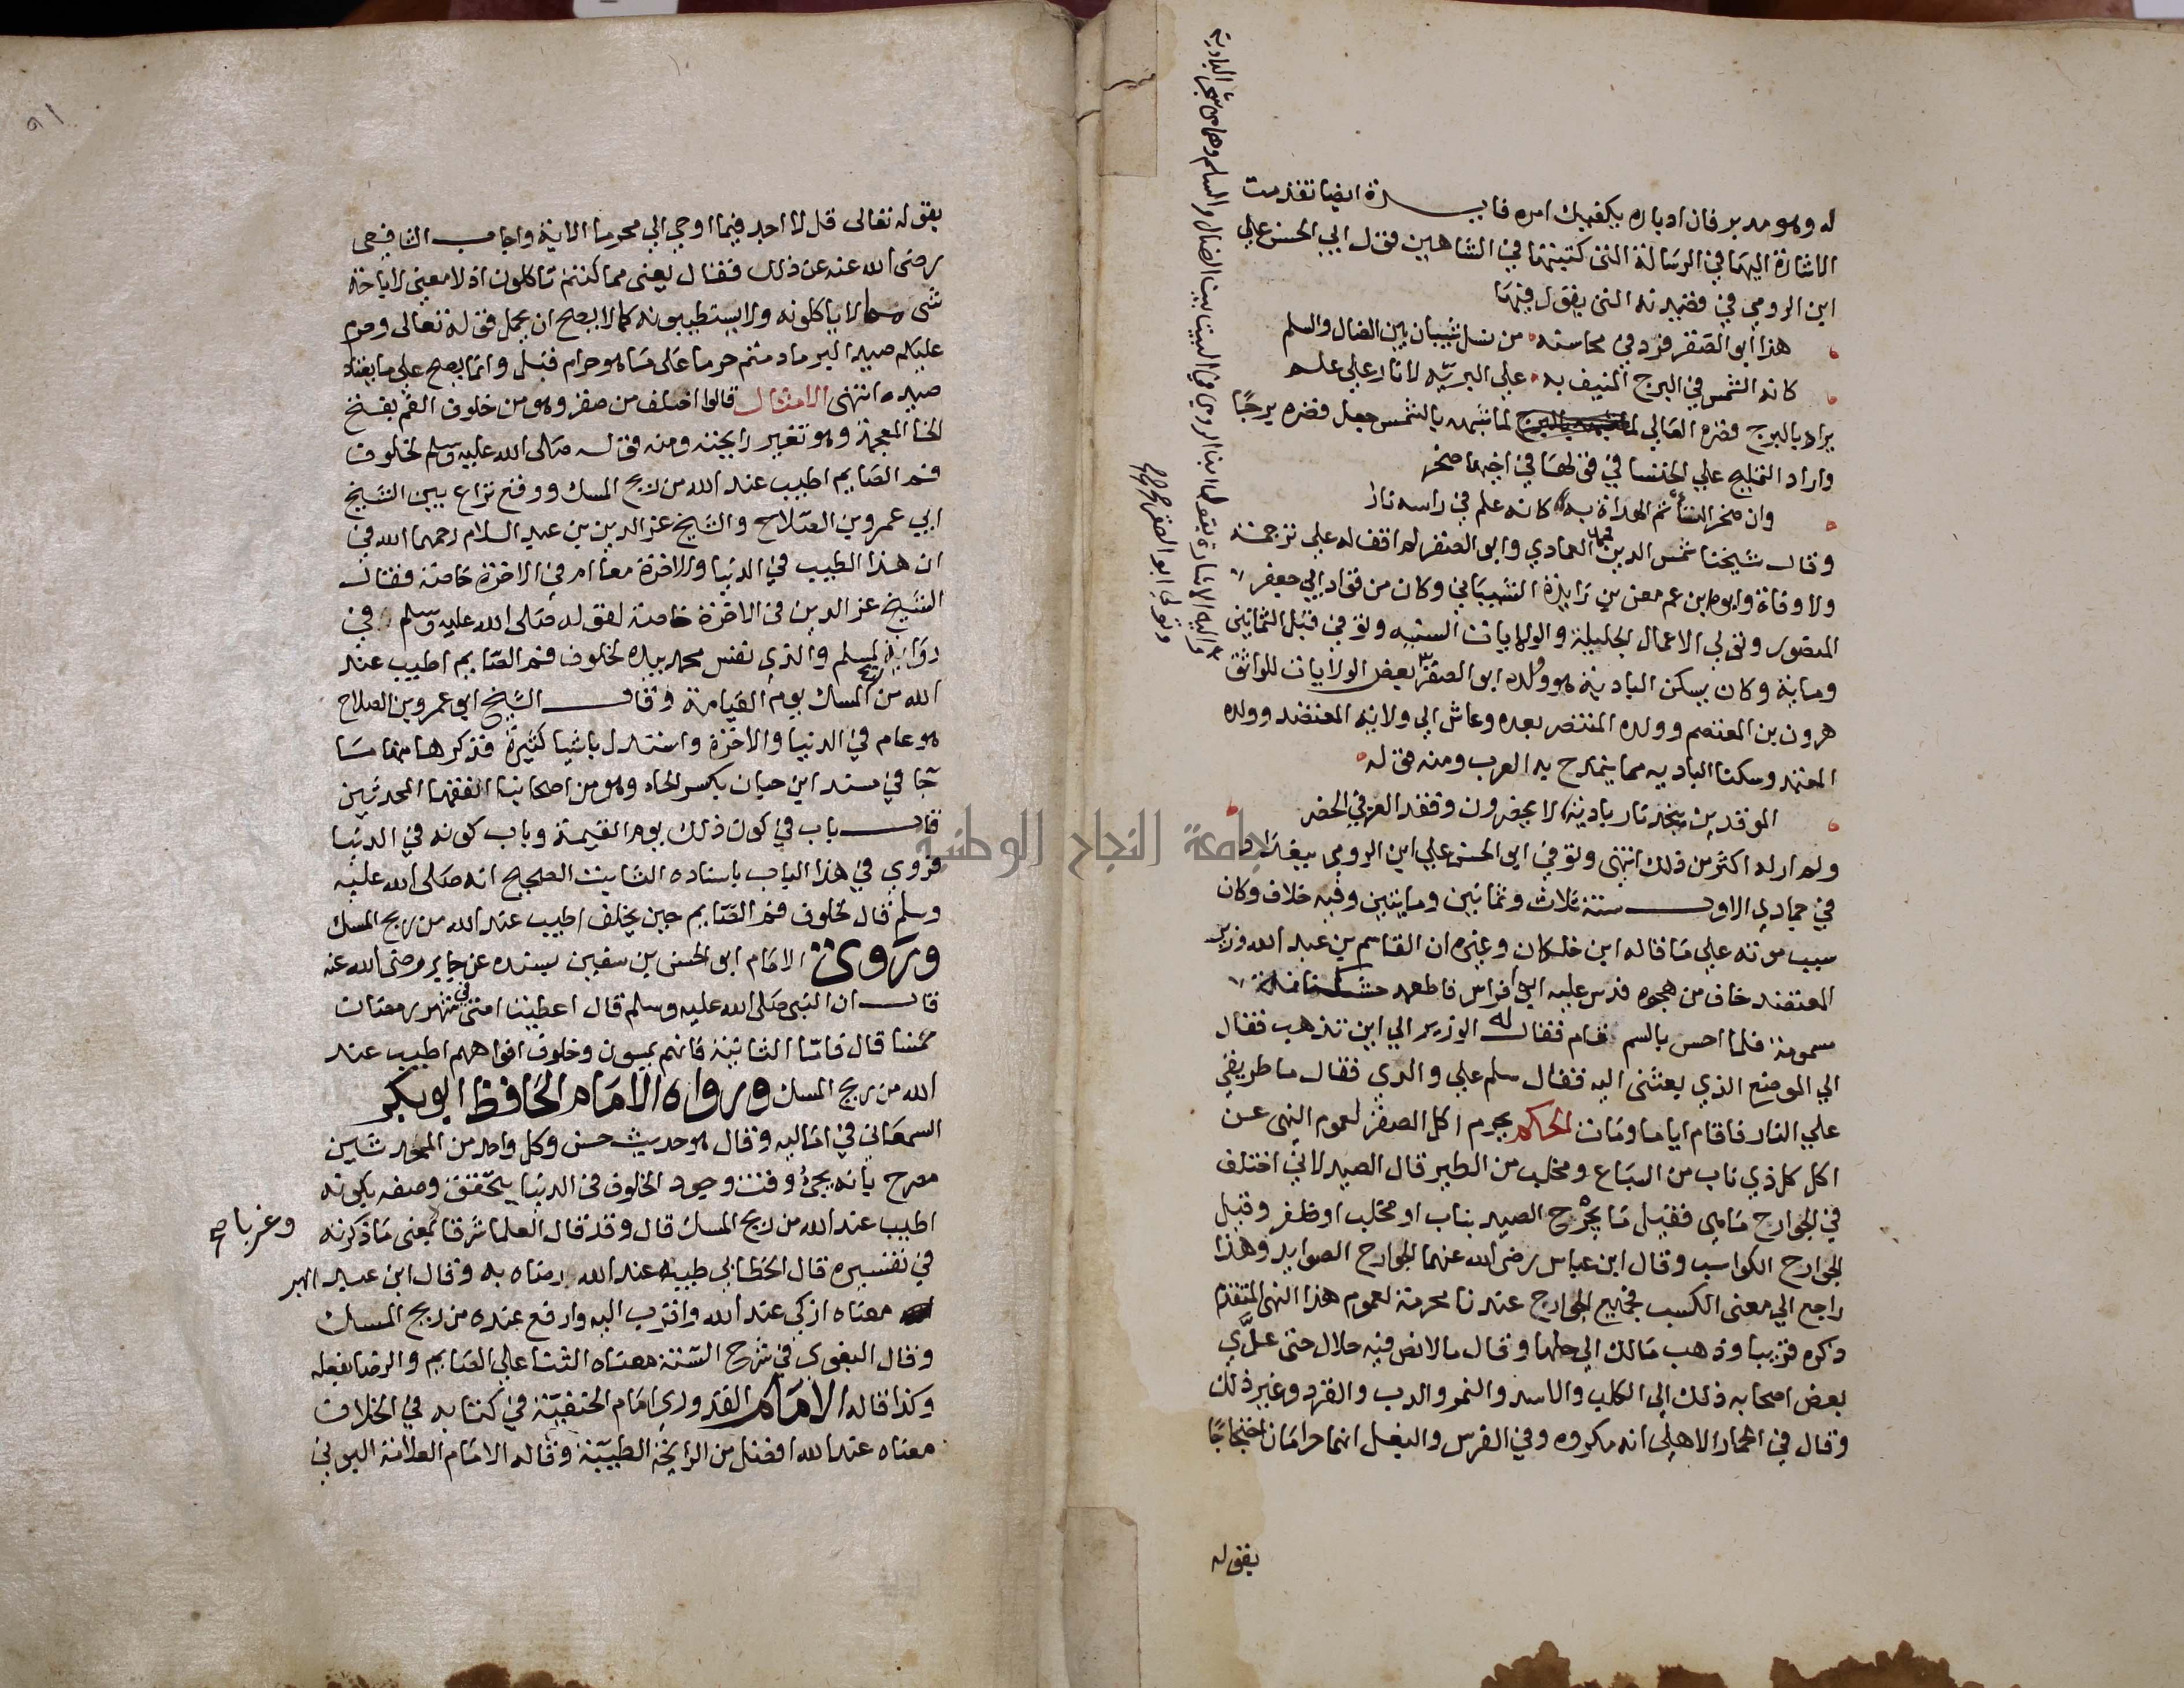 له وهو مدبر فان ادباره يكفيك امره فايدة ايضا تقدمت
الاشارة اليها في الرسالة التي كتبتها في الشاهين فقول ابي الحسن علي
ابن الرومي في قصيدته التي يقول فيها
هذا ابو الصقر فرد في محاسنه من نسل شيبان بين الضال والسلم
كانه الشمس في البرج المنيف به على البرية لا نار على علم
يراد بالبرج قصره العالي لما شبهه بالشمس جعل قصره برجا
واراد التمليح علي الخنسا في قولها في اخيها صخر
وان صخرا لتأتم الهداة به كانه علم في راسه نار
وقال شيخنا شمس الدين محمد العمادي وابو الصقر لم اقف له على ترجمة
ولا وفاة وابوه ابن عم معن بن زايدة الشيباني وكان من قواد ابي جعفر
المنصور وتولى الاعمال الجليلة والولايات السنيه وتوفي قبل الثمانين
وماية وكان يسكن البادية هو وولده ابو الصقر بعض الولايات للواثق
هرون بن المعتصم وولده المنتصر بعده وعاش الي ولاية المعتضد وولده
المعتمد وسكنا الباديه مما يتمادح به العرب ومنه قوله
الموقدين بنجد نار بادية لا يحضرون وفقد العز في الحضر
ولم ار له اكثر من ذلك انتهى وتوفي ابو الحسن علي ابن الرومي ببغداد
في جمادي الاول سنة ثلاث وثمانين ومايتين وفيه خلاف وكان
سبب موته علي ما قاله ابن خلكان وغيره ان القاسم بن عبد الله وزير
المعتضد خاف من هجوه فدس عليه ابو فراس فاطعمه خشكنانة
مسمومة فلما احس بالسم قام فقال له الوزير الي اين تذهب فقال
الي الموضع الذي بعثتني اليه فقال سلم علي والدي فقال ما طريقي
علي النار فاقام اياما ومات الحكم يحرم اكل الصقر لعموم النهي عن
اكل كل ذي ناب من السباع ومخلب من الطير قال الصيدلاني اختلف
في الجوارح ما هي فقيل ما يجرح الصيد بناب او مخلب او ظفر وقيل
الجوارح الكواسب وقال ابن عباس رضي الله عنهما الجوارح الصوايد وهذا
راجع الي معنى الكسب فجميع الجوارح عندنا محرمة لعموم هذا النهي المتقدم
ذكره قريبا وذهب مالك الي حلها وقال ما لا نص فيه حلال حتى عدي
بعض اصحابه ذلك الي الكلب والاسد والنمر والدب والقرد وغير ذلك
وقال في الحمار الاهلي انه مكروه وفي الفرس والبغل انهما حرامان احتجاجا
بقوله
واليه الاشارة بقول ابن الرومي في البيت بين الضال والسلم وهما من شجر البادية
وتولي ابو الصقر
بقوله تعالى قل لا اجد فيما اوحي الي محرما الاية واجاب الشافعي
رضي الله عنه عن ذلك فقال يعني مما كنتم تاكلون اذ لا معنى لاباحة
شي مما لا ياكلونه ولا يستطيبونه كما لا يصح ان يحمل قوله تعالى وحرم
عليكم صيد البر ما دمتم حرما على ما هو حرام قبل وانما يصح على ما يعتاد
صيده انتهى الامثال قالوا اخلف من صقر وهو من خلوف الفم بفتح
الخا المعجمة وهو تغير رايحته ومنه قوله صلى الله عليه وسلم لخلوف
فم الصايم اطيب عند الله من ريح المسك ووقع نزاع بين الشيخ
ابي عمرو بن الصلاح والشيخ عز الدين بن عبد السلام رحمهما الله في
ان هذا الطيب في الدنيا والاخرة معا ام في الاخرة خاصة فقال
الشيخ عز الدين في الاخرة خاصة لقوله صلى الله عليه وسلم في
رواية لمسلم والذي نفس محمد بيده لخلوف فم الصايم اطيب عند
الله من ريح المسك يوم القيامة وقال الشيخ ابو عمرو بن الصلاح
هو عام في الدنيا والاخرة واستدل باشيا كثيرة فذكرها منها ما
جا في مسند ابن حبان بكسر الحاء وهو من اصحابنا الفقها المحدثين
قال باب في كون ذلك يوم القيمة وباب كونه في الدنيا
فروى في هذا الباب باسناده الثابت الصحيح انه صلى الله عليه
وسلم قال لخلوف فم الصايم حين يخلف اطيب عند الله من ريح المسك
وروى الامام ابو الحسن بن سفين بسنده عن جابر رضي الله عنه
قال ان النبي صلى الله عليه وسلم قال اعطيت امتي في شهر رمضان
خمسا قال فاما الثانية فانهم يمسون وخلوف افواههم اطيب عند
الله من ريح المسك ورواه الامام الحافظ ابو بكر
السمعاني في اماليه وقال هو حديث حسن وكل واحد من المحدثين
صرح بانه يجئ وقت وجود الخلوف في الدنيا يتحقق وصفه بكونه
اطيب عند الله من ريح المسك قال وقد قال العلما شرقا وغربا معنى ما ذكرته
في تفسيره قال الخطابي طيبه عند الله رضاه به وقال ابن عبد البر
معناه ازكى عند الله واقرب اليه وارفع عنده من ريح المسك
وقال البغوي في شرح السنة معناه الثنا على الصايم والرضا بفعله
وكذا قاله الامام القدوري امام الحنفية في كتابه في الخلاف
معناه عند الله افضل من الرايحة الطيبة وقاله الامام العلامة البوني
٩١
جامعة النجاح الوطنية